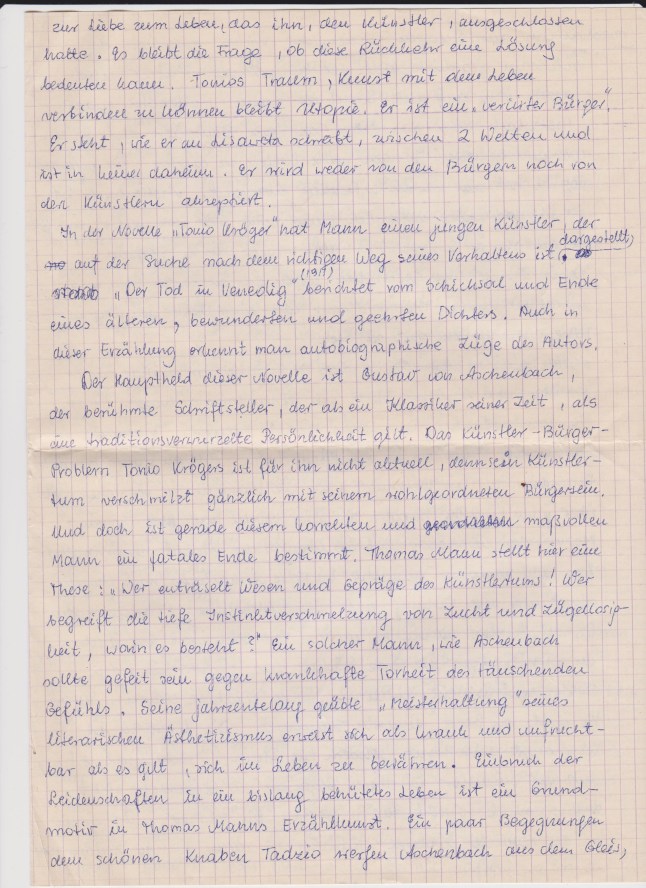 zur Liebe zum Leben, das ihn, den Künstler, ausgeschlossen
hatte. Es bleibt die Frage, ob diese Rückkehr eine Lösung
bedeuten kann. Tonios Traum, Kunst mit dem Leben
verbinden zu können bleibt Utopie. Er ist ein „verirrter Bürger".
Er steht, wie er an Lisaweta schreibt, zwischen 2 Welten und
ist in keiner daheim. Er wird weder von den Bürgern noch von
den Künstlern akzeptiert.
In der Novelle „Tonio Kröger" hat Mann einen jungen Künstler, der
auf der Suche nach dem richtigen Weg seines Verhaltens ist dargestellt,
„Der Tod in Venedig" (1911) berichtet vom Schicksal und Ende
eines älteren, bewunderten und geehrten Dichters. Auch in
dieser Erzählung erkennt man autobiographische Züge des Autors.
Der Hauptheld dieser Novelle ist Gustav von Aschenbach,
der berühmte Schriftsteller, der als ein Klassiker seiner Zeit, als
eine traditionsverwurzelte Persönlichkeit gilt. Das Künstler-Bürger-
Problem Tonio Krögers ist für ihn nicht aktuell, denn sein Künstler-
tum verschmilzt gänzlich mit seinem wohlgeordneten Bürgersein.
Und doch ist gerade diesem korrekten und maßvollen
Mann ein fatales Ende bestimmt. Thomas Mann stellt hier eine
These: „Wer enträtselt Wesen und Gepräge des Künstlertums! Wer
begreift die tiefe Instinktverschmelzung von Zucht und Zügellosig-
keit, worin es besteht?" Ein solcher Mann, wie Aschenbach
sollte gefeit sein gegen krankhafte Torheit des täuschenden
Gefühls. Seine jahrzentelang geübte „Meisterhaltung" seines
literarischen Ästhetizismus erweist sich als krank und unfrucht-
bar als es gilt, sich im Leben zu bewähren. Einbruch der
Leidenschaften in ein bislang behütetes Leben ist ein Grund-
motiv in Thomas Manns Erzählkunst. Ein paar Begegnungen
dem schönen Knaben Tadzio werfen Aschenbach aus dem Gleis,